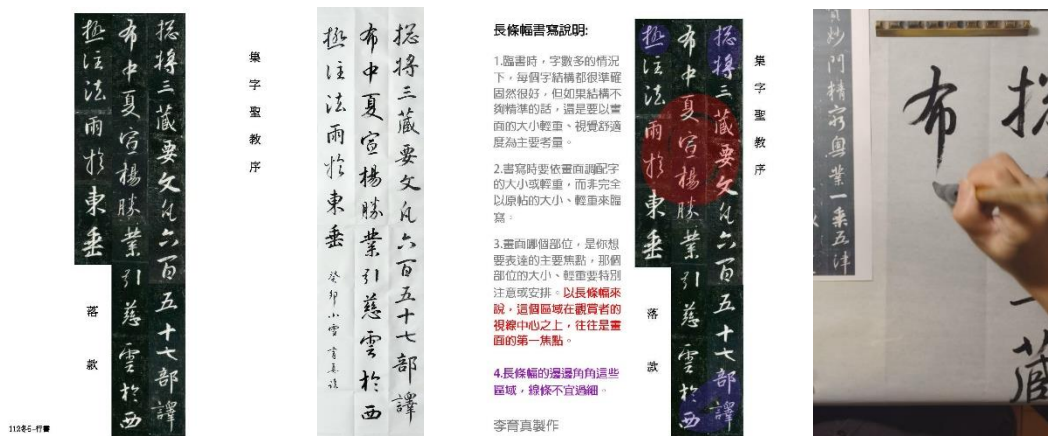 揔將三藏要文凡六百五十七部譯
布中夏宣揚勝業引慈雲於西
極注法雨於東垂
集字聖教序
落款
112冬5-行書
揔將三藏要文凡六百五十七部譯
布中夏宣揚勝業引慈雲於西
極注法雨於東垂
癸卯小雪
長條幅書寫說明:
1.臨書時，字數多的情況
下，每個字結構都很準確
固然很好，但如果結構不
夠精準的話，還是要以畫
面的大小輕重、視覺舒適
度為主要考量。
2.書寫時要依畫面調配字
的大小或輕重，而非完全
以原帖的大小、輕重來臨
寫。
3.畫面哪個部位，是你想
要表達的主要焦點，那個
部位的大小、輕重要特別
注意或安排。以長條幅來
說，這個區域在觀賞者的
視線中心之上，往往是畫
面的第一焦點。
4.長條幅的邊邊角角這些
區域，線條不宜過細。
李育真製作
集字聖教序
揔將三藏要文凡六百五十七部譯
布中夏宣揚勝業引慈雲於西
極注法雨於東垂
落款
妙門精窮奧業一乘五津
揔
布
藏